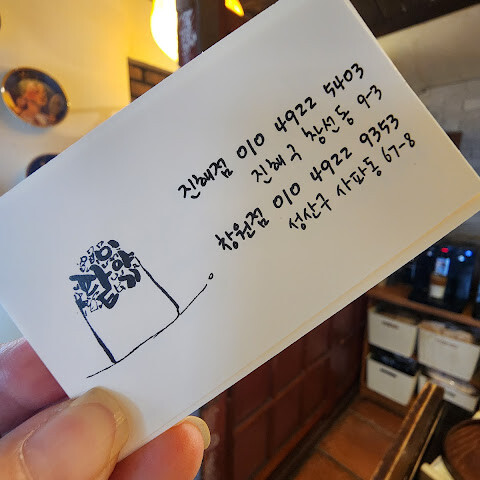 진해점 010 4922 5403
진해구 창선동 9-3
창원점 010 4922 9353
성산구 사파동 67-8